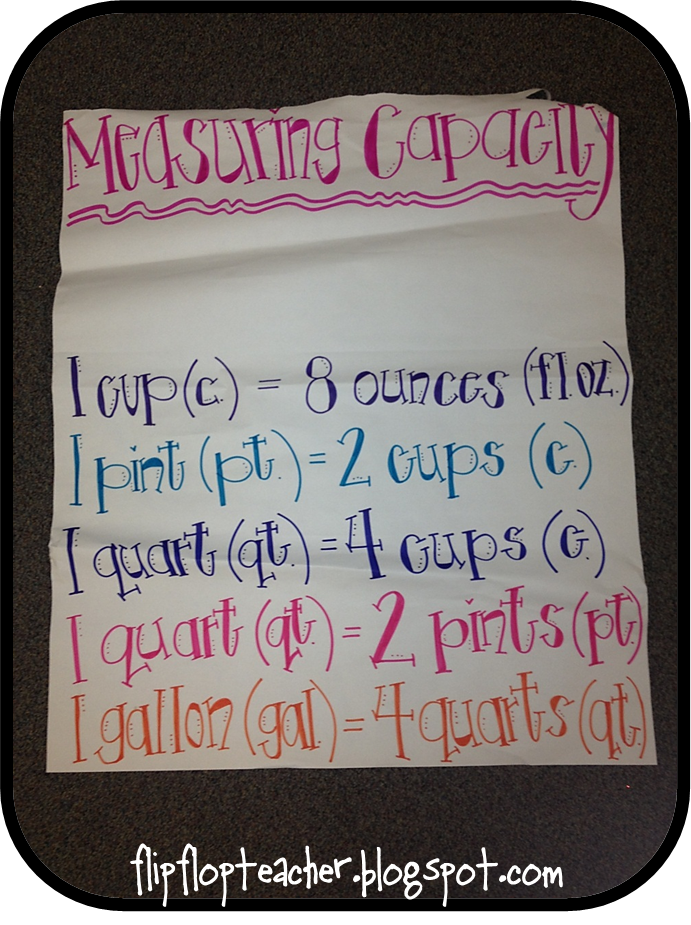 Measuring Capacity
1 cup (c.) = 8 ounces (fl.oz.)
1 pint (pt.) = 2 cups (c.)
1 quart (qt.) = 4 cups (c.)
1 quart (qt.) = 2 pints (pt.)
1 gallon (gal) = 4 quarts (qt.)
flipflopteacher.blogspot.com